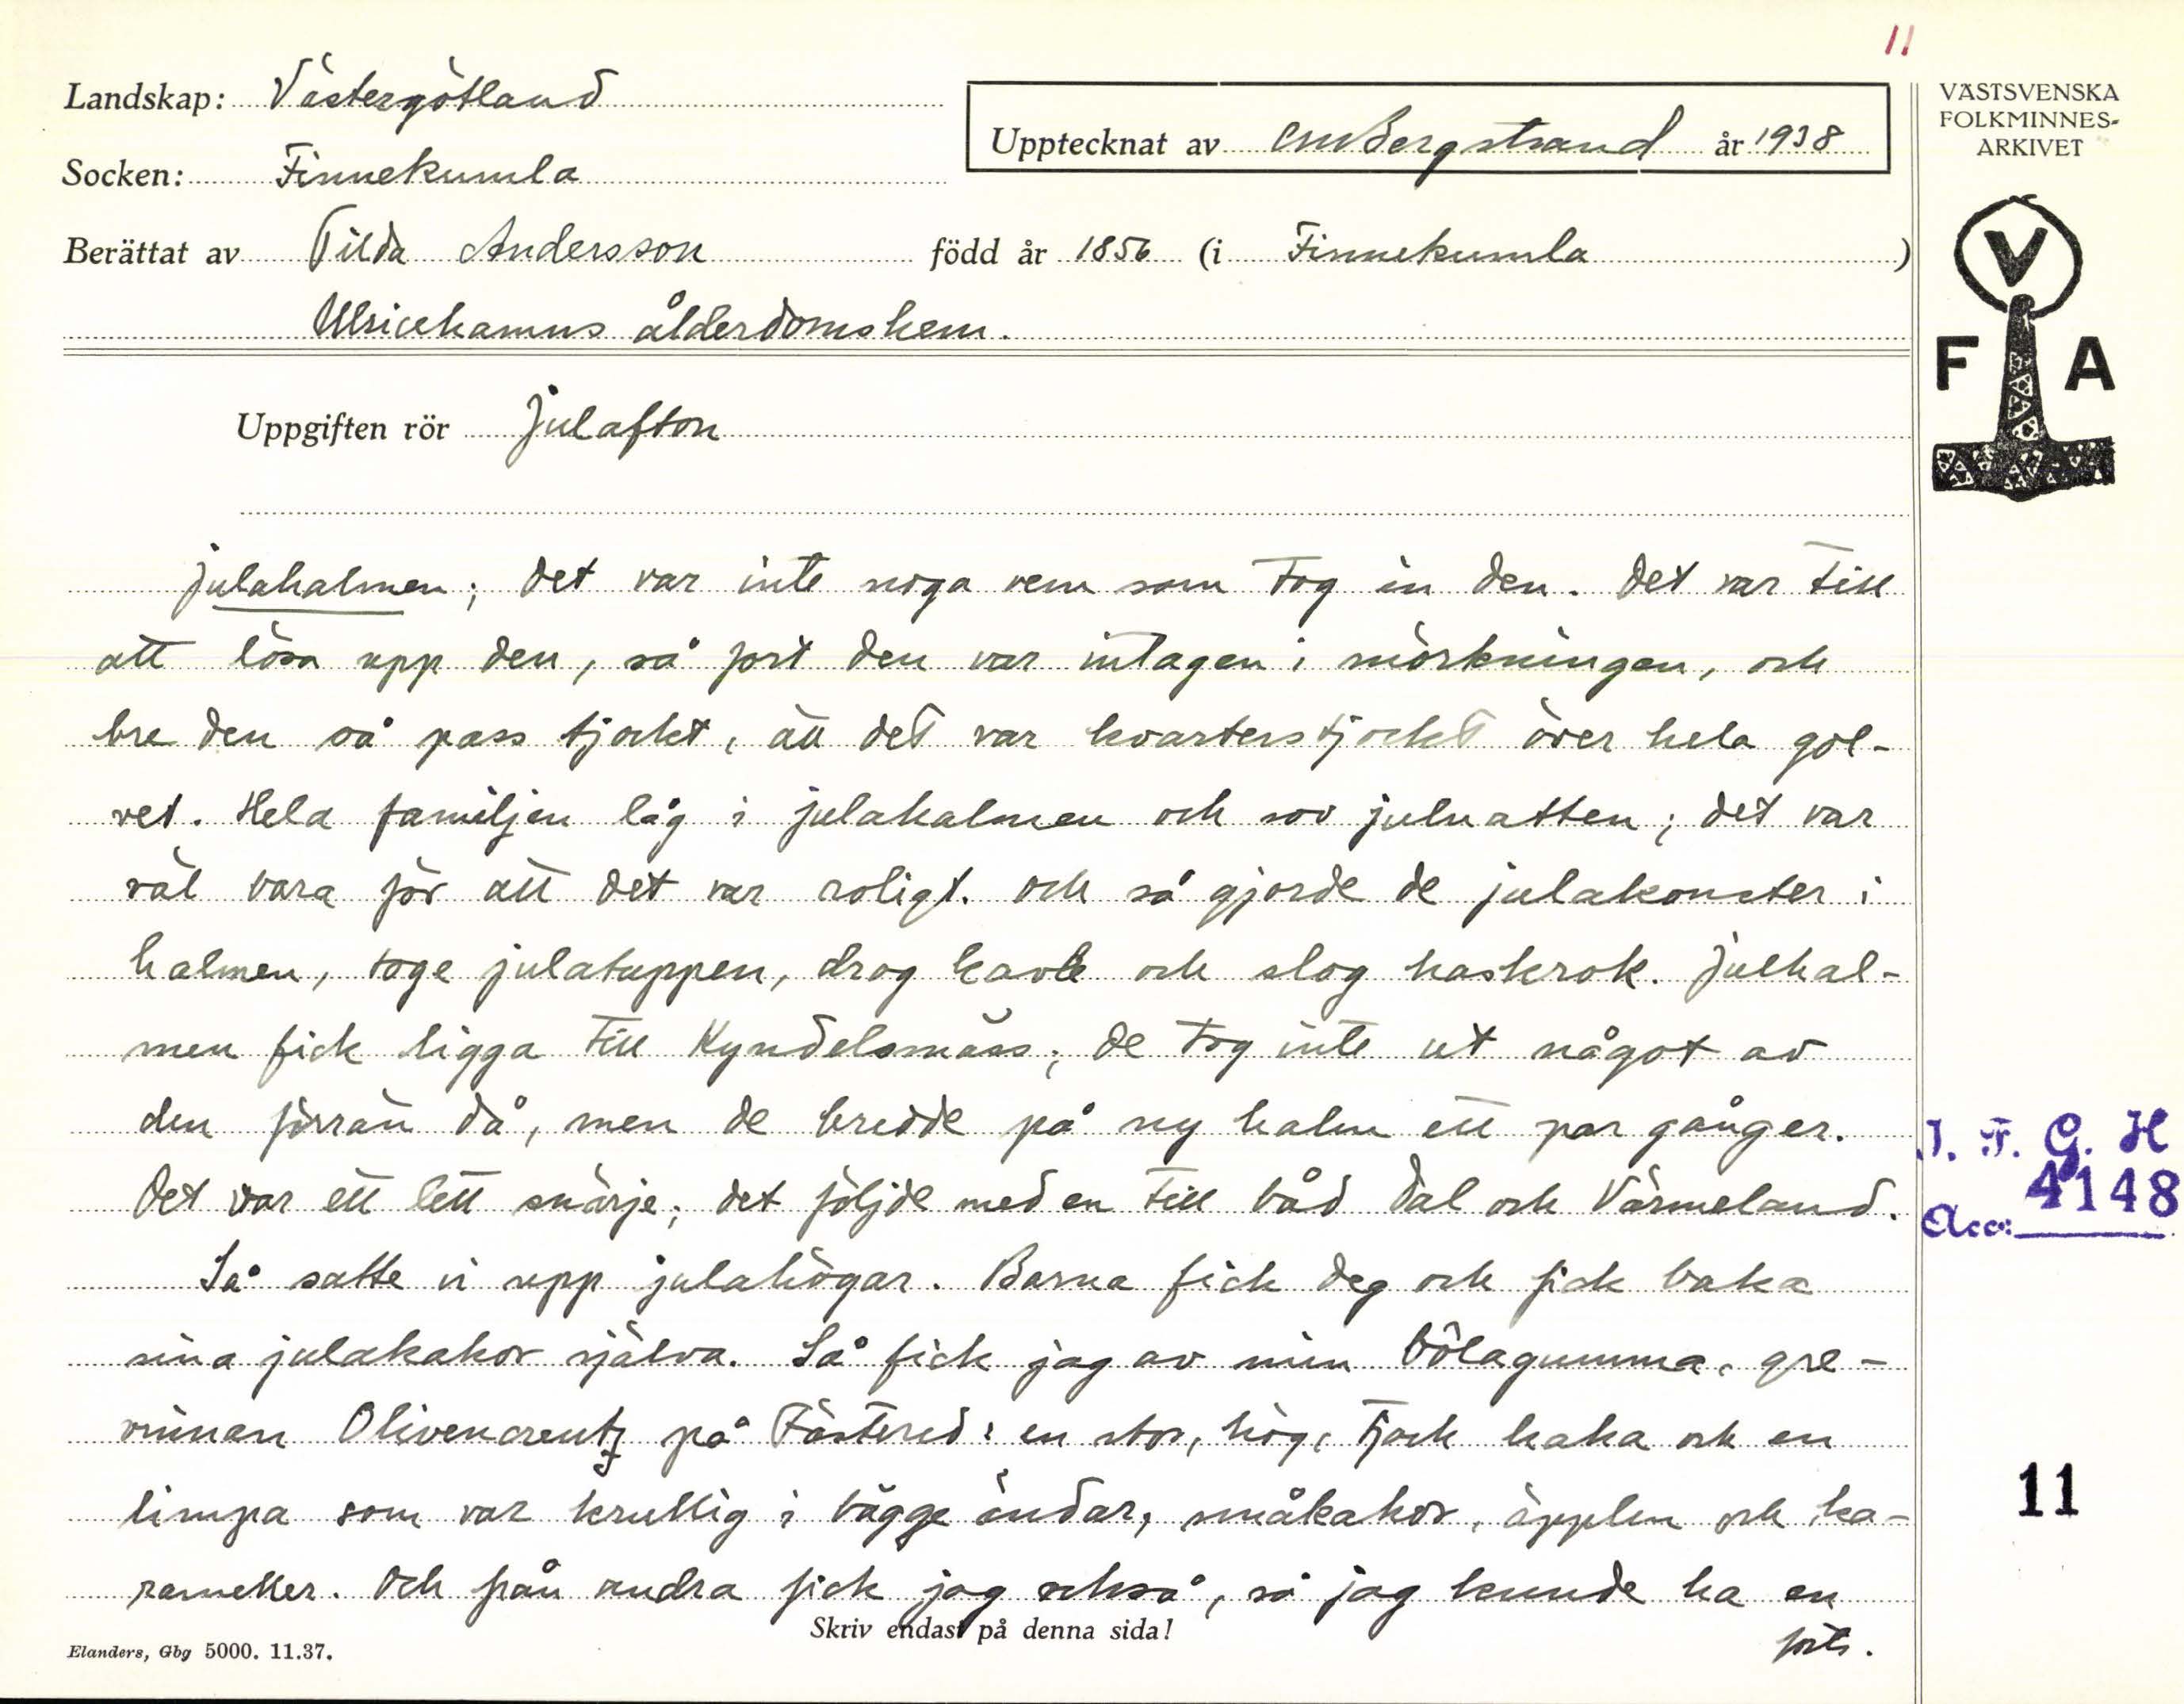 11
Landskap: Västergötland
Upptecknat av CMBergstrand år 1938
VÄSTSVENSKA
FOLKMINNES-
ARKIVET
Socken: Finnekumla
Berättat av Tilda Andersson född år 1856 (i Finnekumla)
Ulricehamns ålderdomshem.
V
F A
Uppgiften rör Julafton
Julahalmen; det var inte noga vem som tog in den. Det var till
att lösa upp den, så fort den var intagen i mörkningen, och
bre den så pass tjockt, att det var kvarterstjockt över hela gol-
vet. Hela familjen låg i julahalmen och sov julnatten; det var
väl bara för att det var roligt. Och så gjorde de julakonster i
halmen, toge julatuppen, drog kavle och slog haskrok. Julhal-
men fick ligga till Kyndelsmäss; de tog inte ut något av
den förrän då, men de bredde på ny halm ett par gånger.
Det var ett lett snärje; det följde med en till båd Dal och Värmeland.
Så satte vi upp julahögar. Barna fick deg och fick baka
sina julakakor själva. Så fick jag av min bôlagumma, gre-
vinnan Olivencreutz på Fästered: en stor, hög, tjock kaka och en
limpa som var krullig i bägge ändar, småkakor, äpplen och ka-
rameller. Och från andra fick jag också, så jag kunde ha en
forts.
Skriv endast på denna sida!
Elanders, Gbg 5000. 11.37.
I. F. G. H
Acc: 4148
11